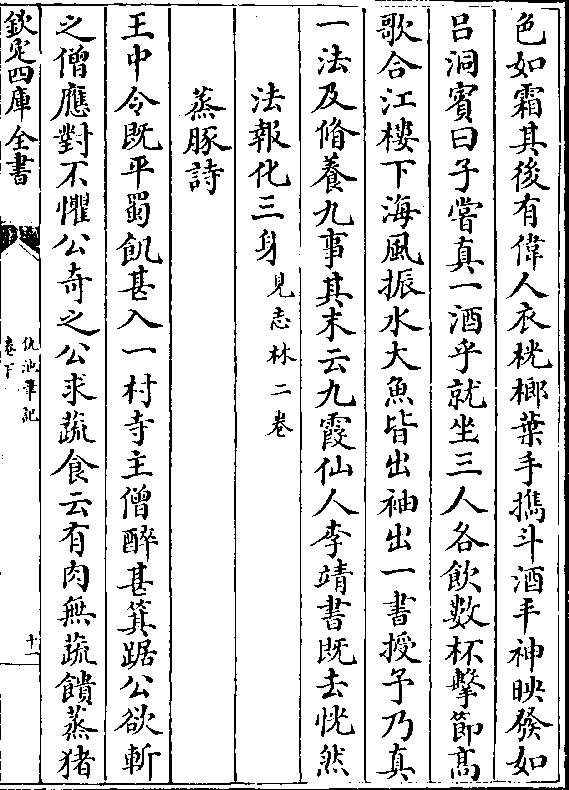 色如霜其後有偉人衣桄榔葉手攜斗酒丰神映發如
呂洞賓曰子嘗真一酒乎就坐三人各飲數杯擊節高
歌合江樓下海風振水大魚皆出袖出一書授予乃真
一法及脩養九事其末云九霞仙人李靖書既去恍然
法報化三身見志林二卷
蒸豚詩
王中令既平蜀飢甚入一村寺主僧醉甚箕踞公欲斬
之僧應對不懼公奇之公求蔬食云有肉無蔬饋蒸猪
欽定四庫全書
仇池筆記
卷下
十一